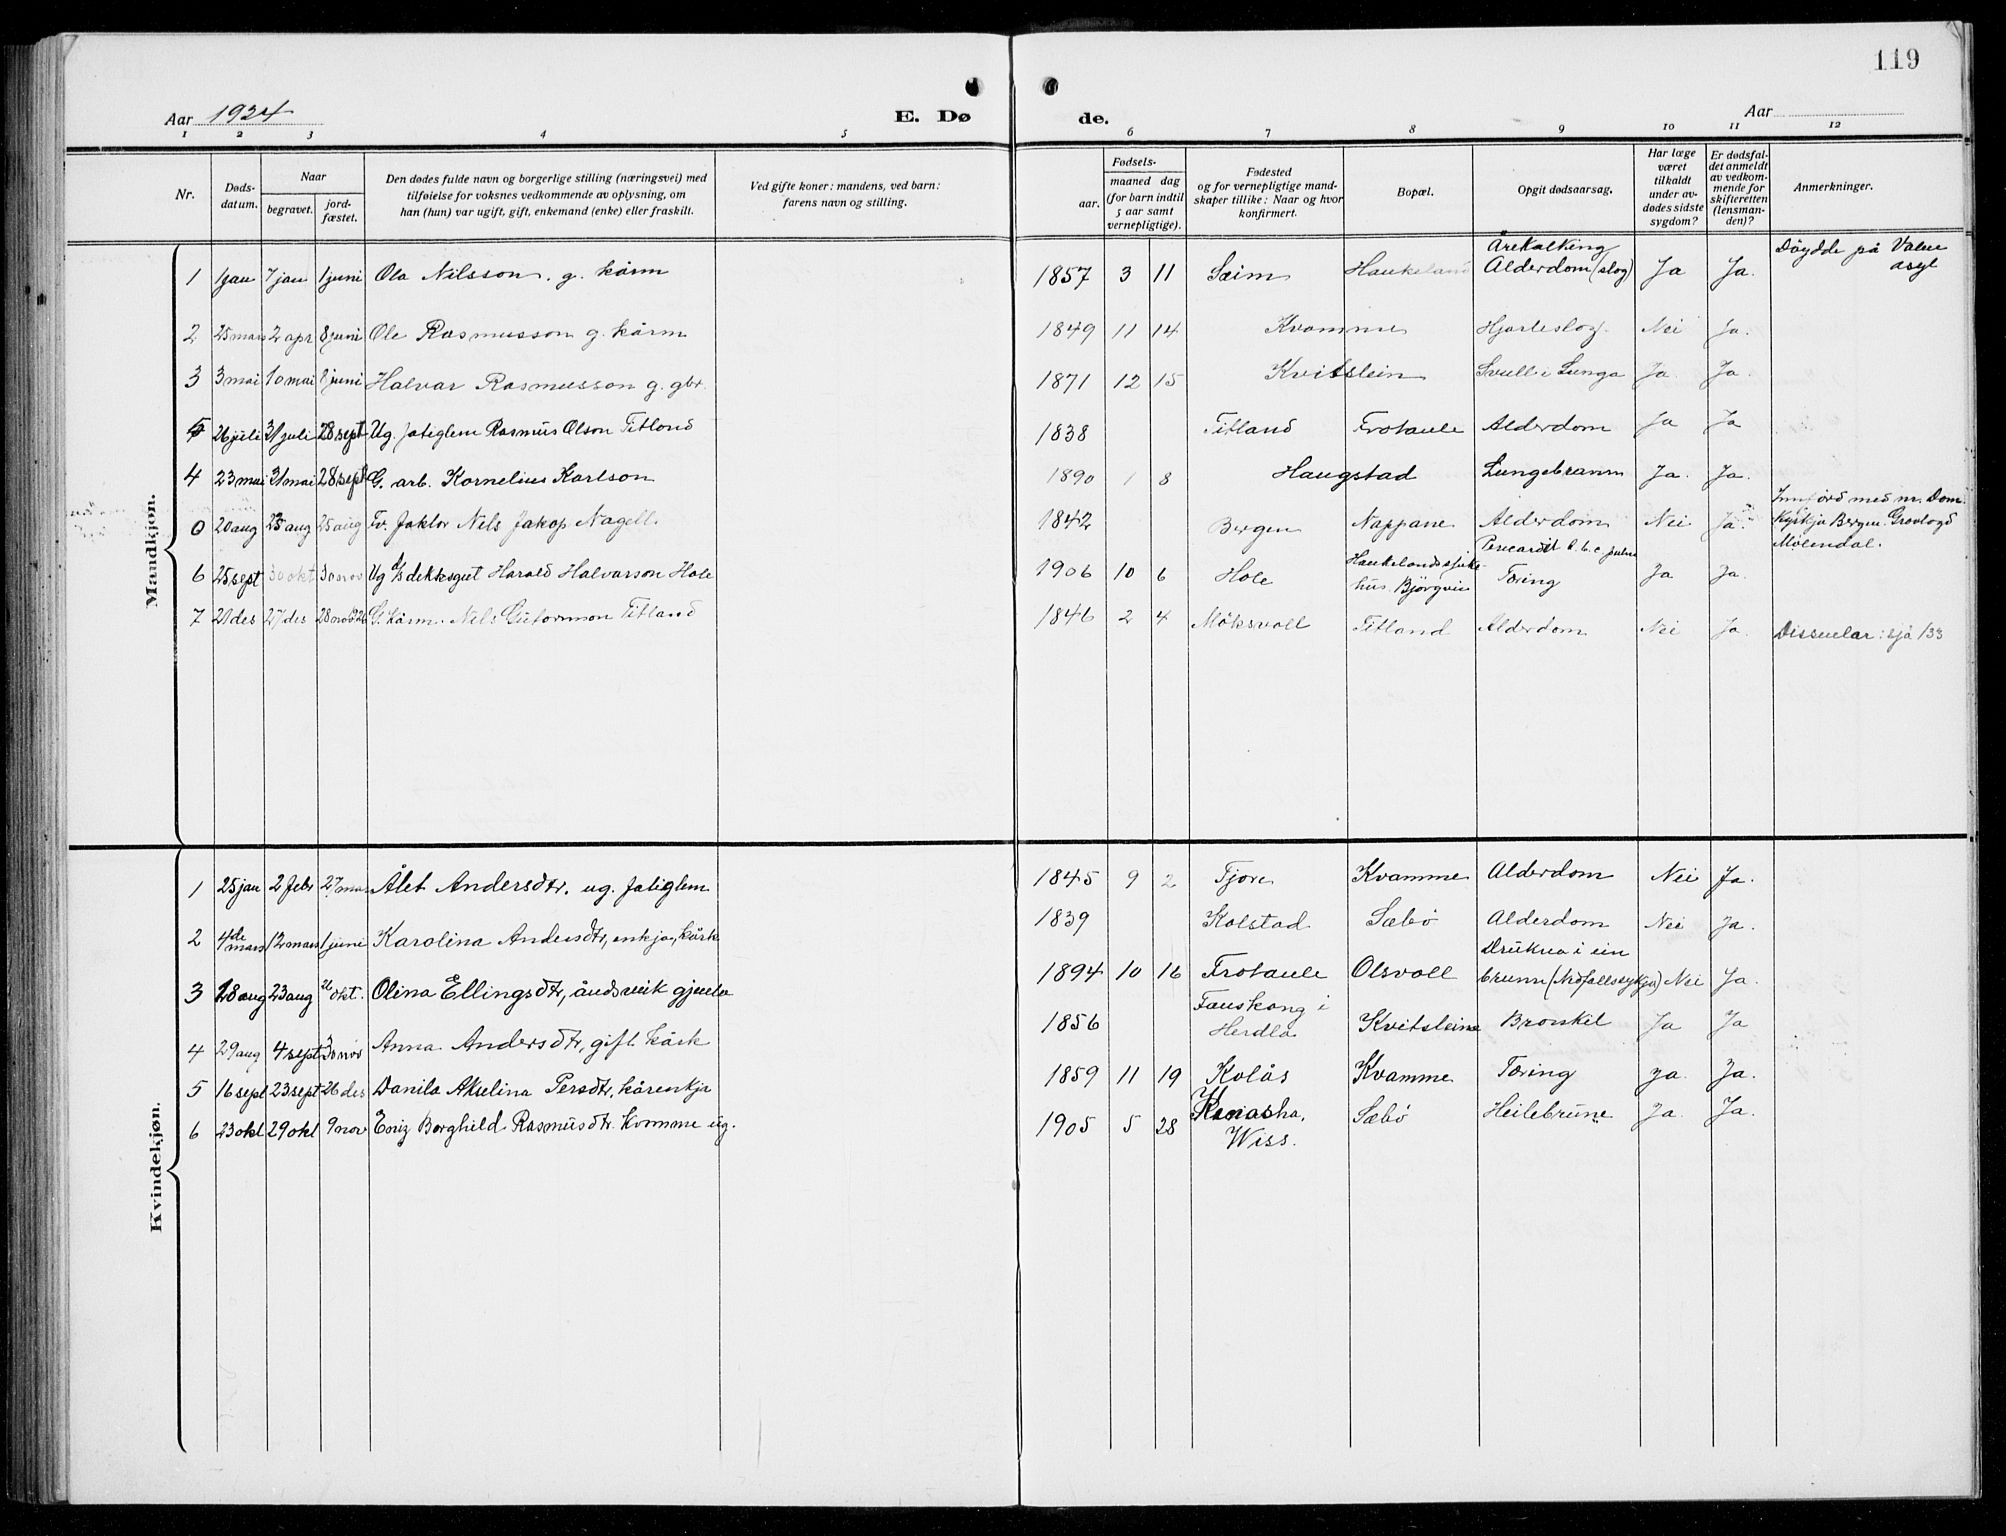 119
Aar 1924
E. Dø
de.
Aar
1 2 3 4 5 6 7 8 9 10 11 12
Nr.
Døds-
datum.
Naar
begravet.
jord-
fæstet.
Den dødes fulde navn og borgerlige stilling (næringsvei) med
tilføielse for voksnes vedkommende av oplysning, om
han (hun) var ugift, gift, enkemand (enke) eller fraskilt.
Ved gifte koner: mandens, ved barn:
farens navn og stilling.
Fødsels-
aar.
maaned dag
(for barn indtil
5 aar samt
vernepligtige).
Fødested
og for vernepligtige mand-
skaper tillike: Naar og hvor
konfirmert.
Bopæl.
Opgit dødsaarsag.
Har læge
været
tilkaldt
under av-
dødes sidste
sygdom?
Er dødsfal-
det anmeldt
av vedkom-
mende for
skifteretten
(lensman-
den)?
Anmerkninger.
Mandkjøn.
1 1 jan 7 jan 1 juni Ola Nilsson. g. kårm 1857 3 11 Sæim Haukeland Årekalking Alderdom (slog) Ja Ja. Döydde på asyl
2 25 mars 2 apr 8 juni Ole Rasmusson g. kårm 1849 11 14 Kvamme Hjarteslog. Nei Ja.
3 3 mai 10 mai 8 juni Halvar Rasmusson g. gbr. 1871 12 15 Kvitstein Svull i Lunga Ja. Ja.
5 26 juli 31 juli 28 sept Ug. fatiglem Rasmus Olson Titland 1838 Titland Frotaule Alderdom Ja Ja
4 23 mai 31 mai 28 sept G. arb. Kornelius Karlson 1890 1 8 Haugstad Lungebrann Ja. Ja.
0 20 aug 25 aug 25 aug Fv. faktor Nels Jakop Nagell. 1842 Bergen Nappane Alderdom Nei Ja. Innförd med nr. Dom-
Kyrkja Bergen. Gravlagd
Mölendal.
6 25 sept 30 okt 30 nov Ug dekksgut Harald Halvarson Hole 1906 10 6 Hole Haukelandssjuke-
hus. Björgvin Tæring Ja Ja.
7 21 des 27 des 28 nov 1926 G. kårm. Nels Gutormson Titland 1846 2 4 Möksvoll Titland Alderdom Nei Ja. Dissentar: sjå 133
Kvindekjøn.
1 25 jan 2 febr 27 mars Ålet Andersdtr. ug. fatiglem 1845 9 2 Tjore Kvamme Alderdom Nei Ja.
2 4de mars 12 mars 1 juni Karolina Andersdtr, enkja, kårk 1839 Kolstad Sæbö Alderdom Nei Ja.
3 18 aug 23 aug 26 okt. Olina Ellingsdtr, åndsveik gjenta 1894 10 16 Frotaule Olsvoll Drukna i ein
brunn (Nedfallssykja) Nei Ja.
4 29 aug 4 sept 30 nov Anna Andersdtr, gift kårk 1856 Fauskang i
Herdla Kvitsteine Ja Ja
5 16 sept 23 sept 26 des Danila Akselina Persdtr, kårenkja 1859 11 19 Kolås Kvamme Tæring Ja. Ja.
6 23 okt 29 okt 9 nov Eniz Borghild Rasmusdtr. Kvamme ug. 1905 5 28 Kenosha,
Wiss. Sæbö Heilebrune Ja. Ja.